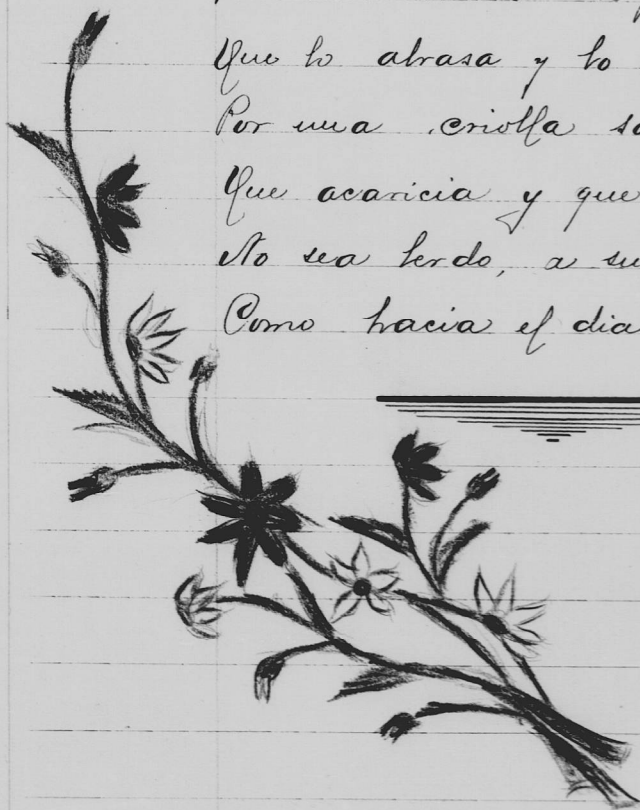 Que lo abrasa y lo
Por una criolla
Que acaricia y que
No sea lerdo, a su
Como hacia el dia